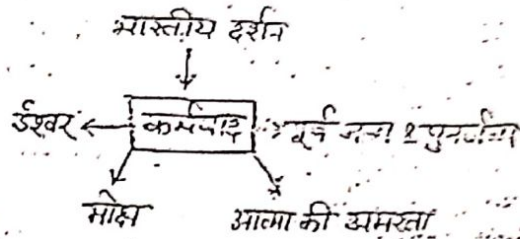 भारतीय दर्शन
ईश्वर कर्मवाद पूर्व जन्म व पुनर्जन्म
मोक्ष आत्मा की अमरता